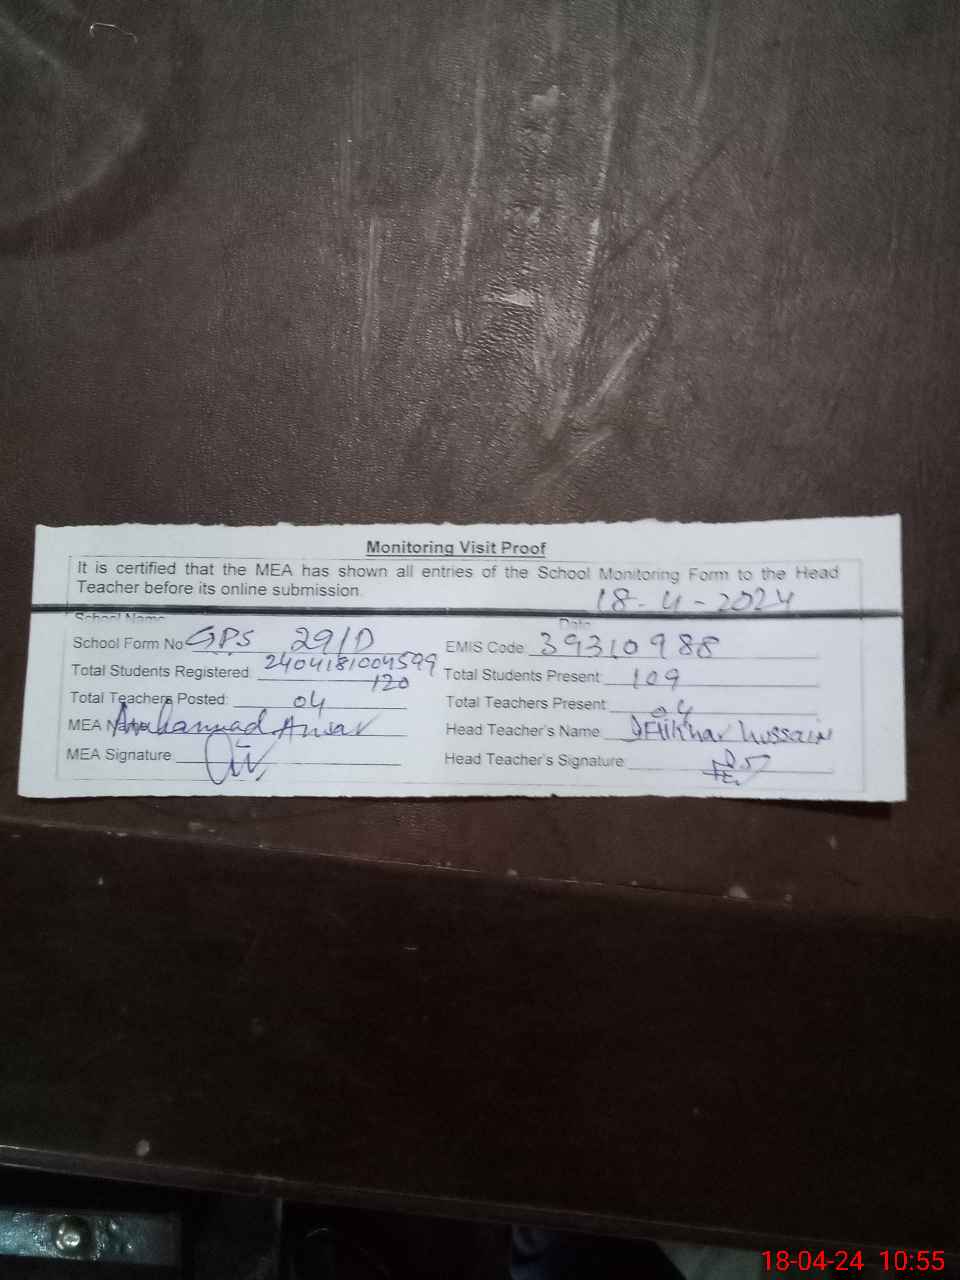 Monitoring Visit Proof
It is certified that the MEA has shown all entries of the School Monitoring Form to the Head
Teacher before its online submission.
18-4-2024
School Name Date
School Form No GPS 29/D EMIS Code: 39310988
Total Students Registered: 2404181004599 120 Total Students Present: 109
Total Teachers Posted: 04 Total Teachers Present: 04
MEA Name Muhammad Anwar Head Teacher's Name Iftikhar Hussain
MEA Signature Head Teacher's Signature
18-04-24 10:55